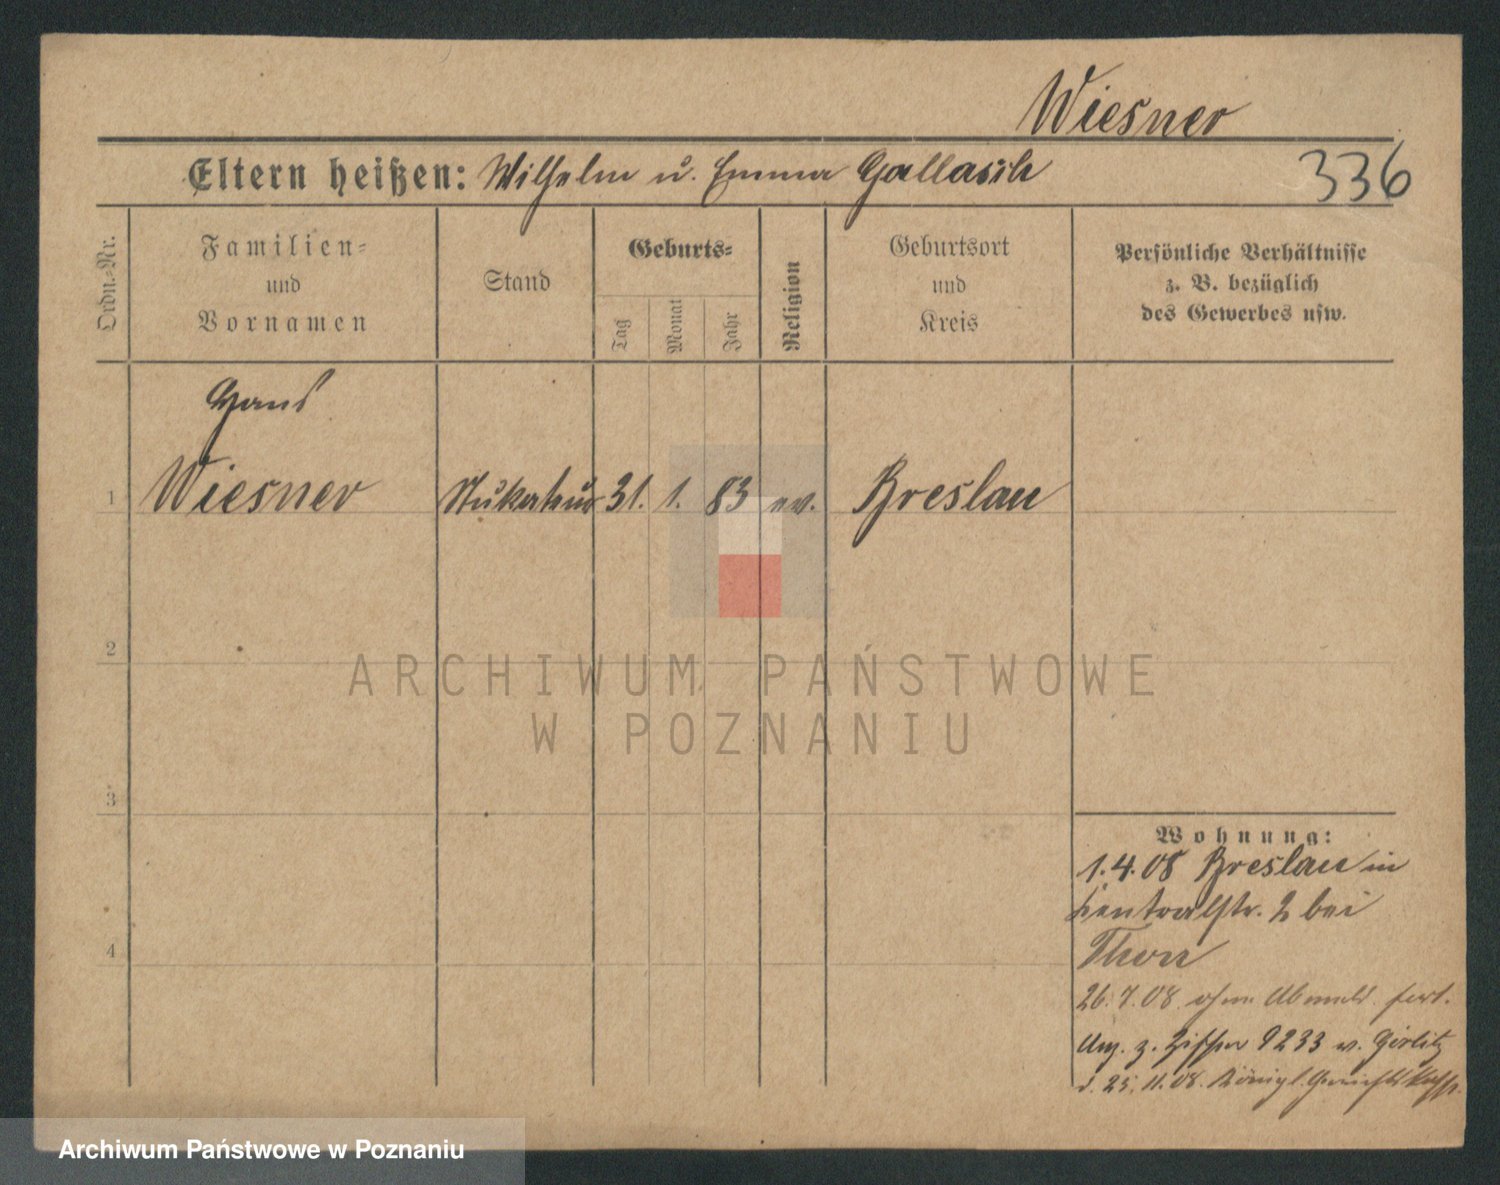 Wiesner
Eltern heißen: Wilhelm u. Emma Gallasch
336
Ordn.-Nr.
Familien-
und
Vornamen
Stand
Geburts-
Tag
Monat
Jahr
Religion
Geburtsort
und
Kreis
Persönliche Verhältnisse
z. B. bezüglich
des Gewerbes usw.
Hans
1 Wiesner Stukateur 31. 1. 83 ev. Breslau
2
ARCHIWUM PAŃSTWOWE
W POZNANIU
3
4
Wohnung:
1.4.08 Breslau in
Zentralstr. 2 bei
Thorn
26.7.08. ohne Abmeld. fort.
Anz. z. Ziffer 9233 v. Görlitz
d. 25.11.08. Königl. Gerichtskasse
Archiwum Państwowe w Poznaniu